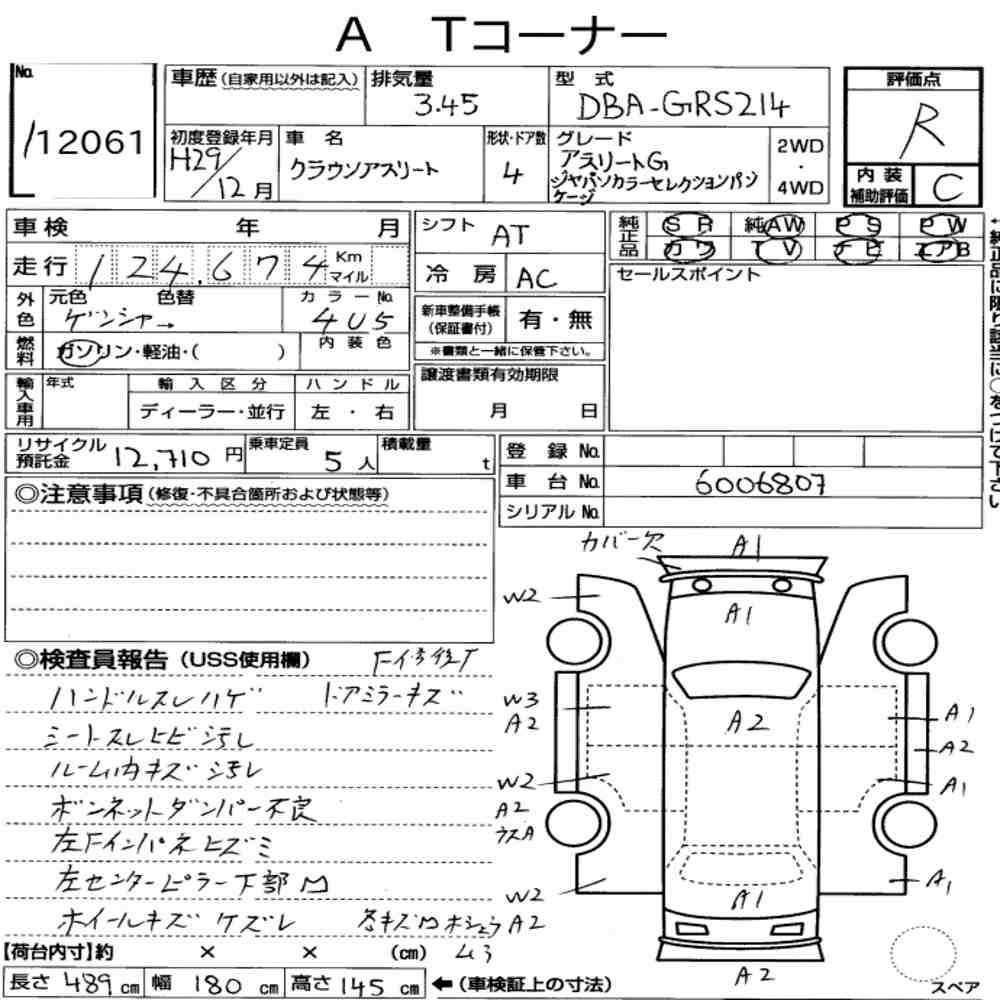 A Tコーナー
No. 112061
車歴(自家用以外は記入)
排気量 3.45
型式 DBA-GRS214
評価点 R
初度登録年月 H29/12月
車名 クラウンアスリート
形状・ドア数 4
グレード アスリートG
ジャパンカラーセレクションパッ
ケージ
2WD・4WD
内装補助評価 C
車検 年 月
シフト AT
純正品 SR 純AW PS PW
カワ TV ナビ エアB
走行 124,674 Km マイル
冷房 AC
セールスポイント
外色 元色 色替 カラーNo. 4U5
新車整備手帳(保証書付) 有・無
燃料 ガソリン・軽油・( ) 内装色
※書類と一緒に保管下さい。
輸入車用 年式 輸入区分 ハンドル
ディーラー・並行 左・右
譲渡書類有効期限
月 日
←純正品に限り該当に○をつけて下さい
リサイクル預託金 12,710円
乗車定員 5人
積載量 t
登録No.
車台No. 6006807
シリアルNo.
◎注意事項(修復・不具合箇所および状態等)
カバー欠 A1
W2 A1
◎検査員報告(USS使用欄)
F修復
ハンドルスレハゲ ドアミラーキズ
シートスレヒビ汚レ
ルーム内キズ汚レ
ボンネットダンパー不良
左Fインパネヒズミ
左センターピラー下部凹
ホイールキズケズレ
W3 A2 A2 A1
A2
W2 A1
A2
ウスA
W2 A1 A1
A2
A2
【荷台内寸】約 × × (cm)
長さ 489cm 幅 180cm 高さ 145cm ←(車検証上の寸法)
スペア